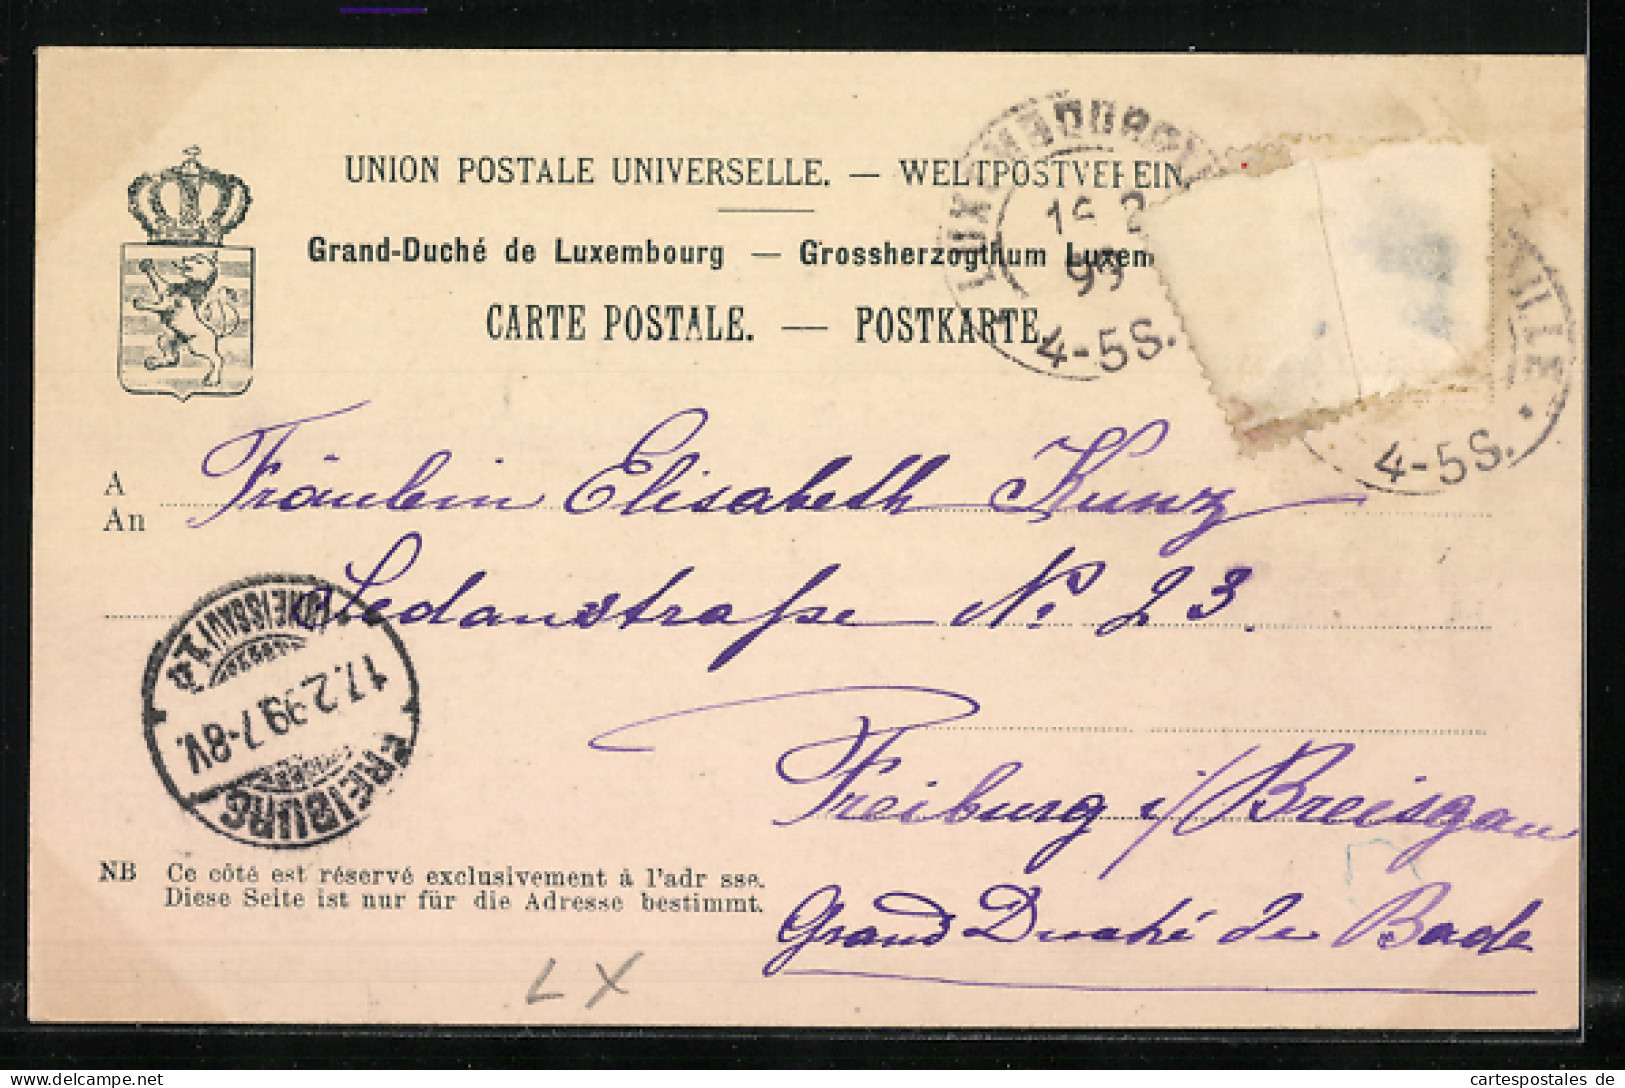 UNION POSTALE UNIVERSELLE. — WELTPOSTVEREIN.
Grand-Duché de Luxembourg — Grossherzogthum Luxem
CARTE POSTALE. — POSTKARTE.
LUXEMBOURG VILLE
16 2
99
4-5S.
VILLE
4-5S.
A
An
Fräulein Elisabeth Kunz
Sedanstraße No. 23.
Freiburg i/Breisgau
Grand Duché de Bade
FREIBURG
17.2.99.7-8V.
(BREISGAU) 1
NB Ce côté est réservé exclusivement à l'adr sse.
Diese Seite ist nur für die Adresse bestimmt.
LX
cartespostales de